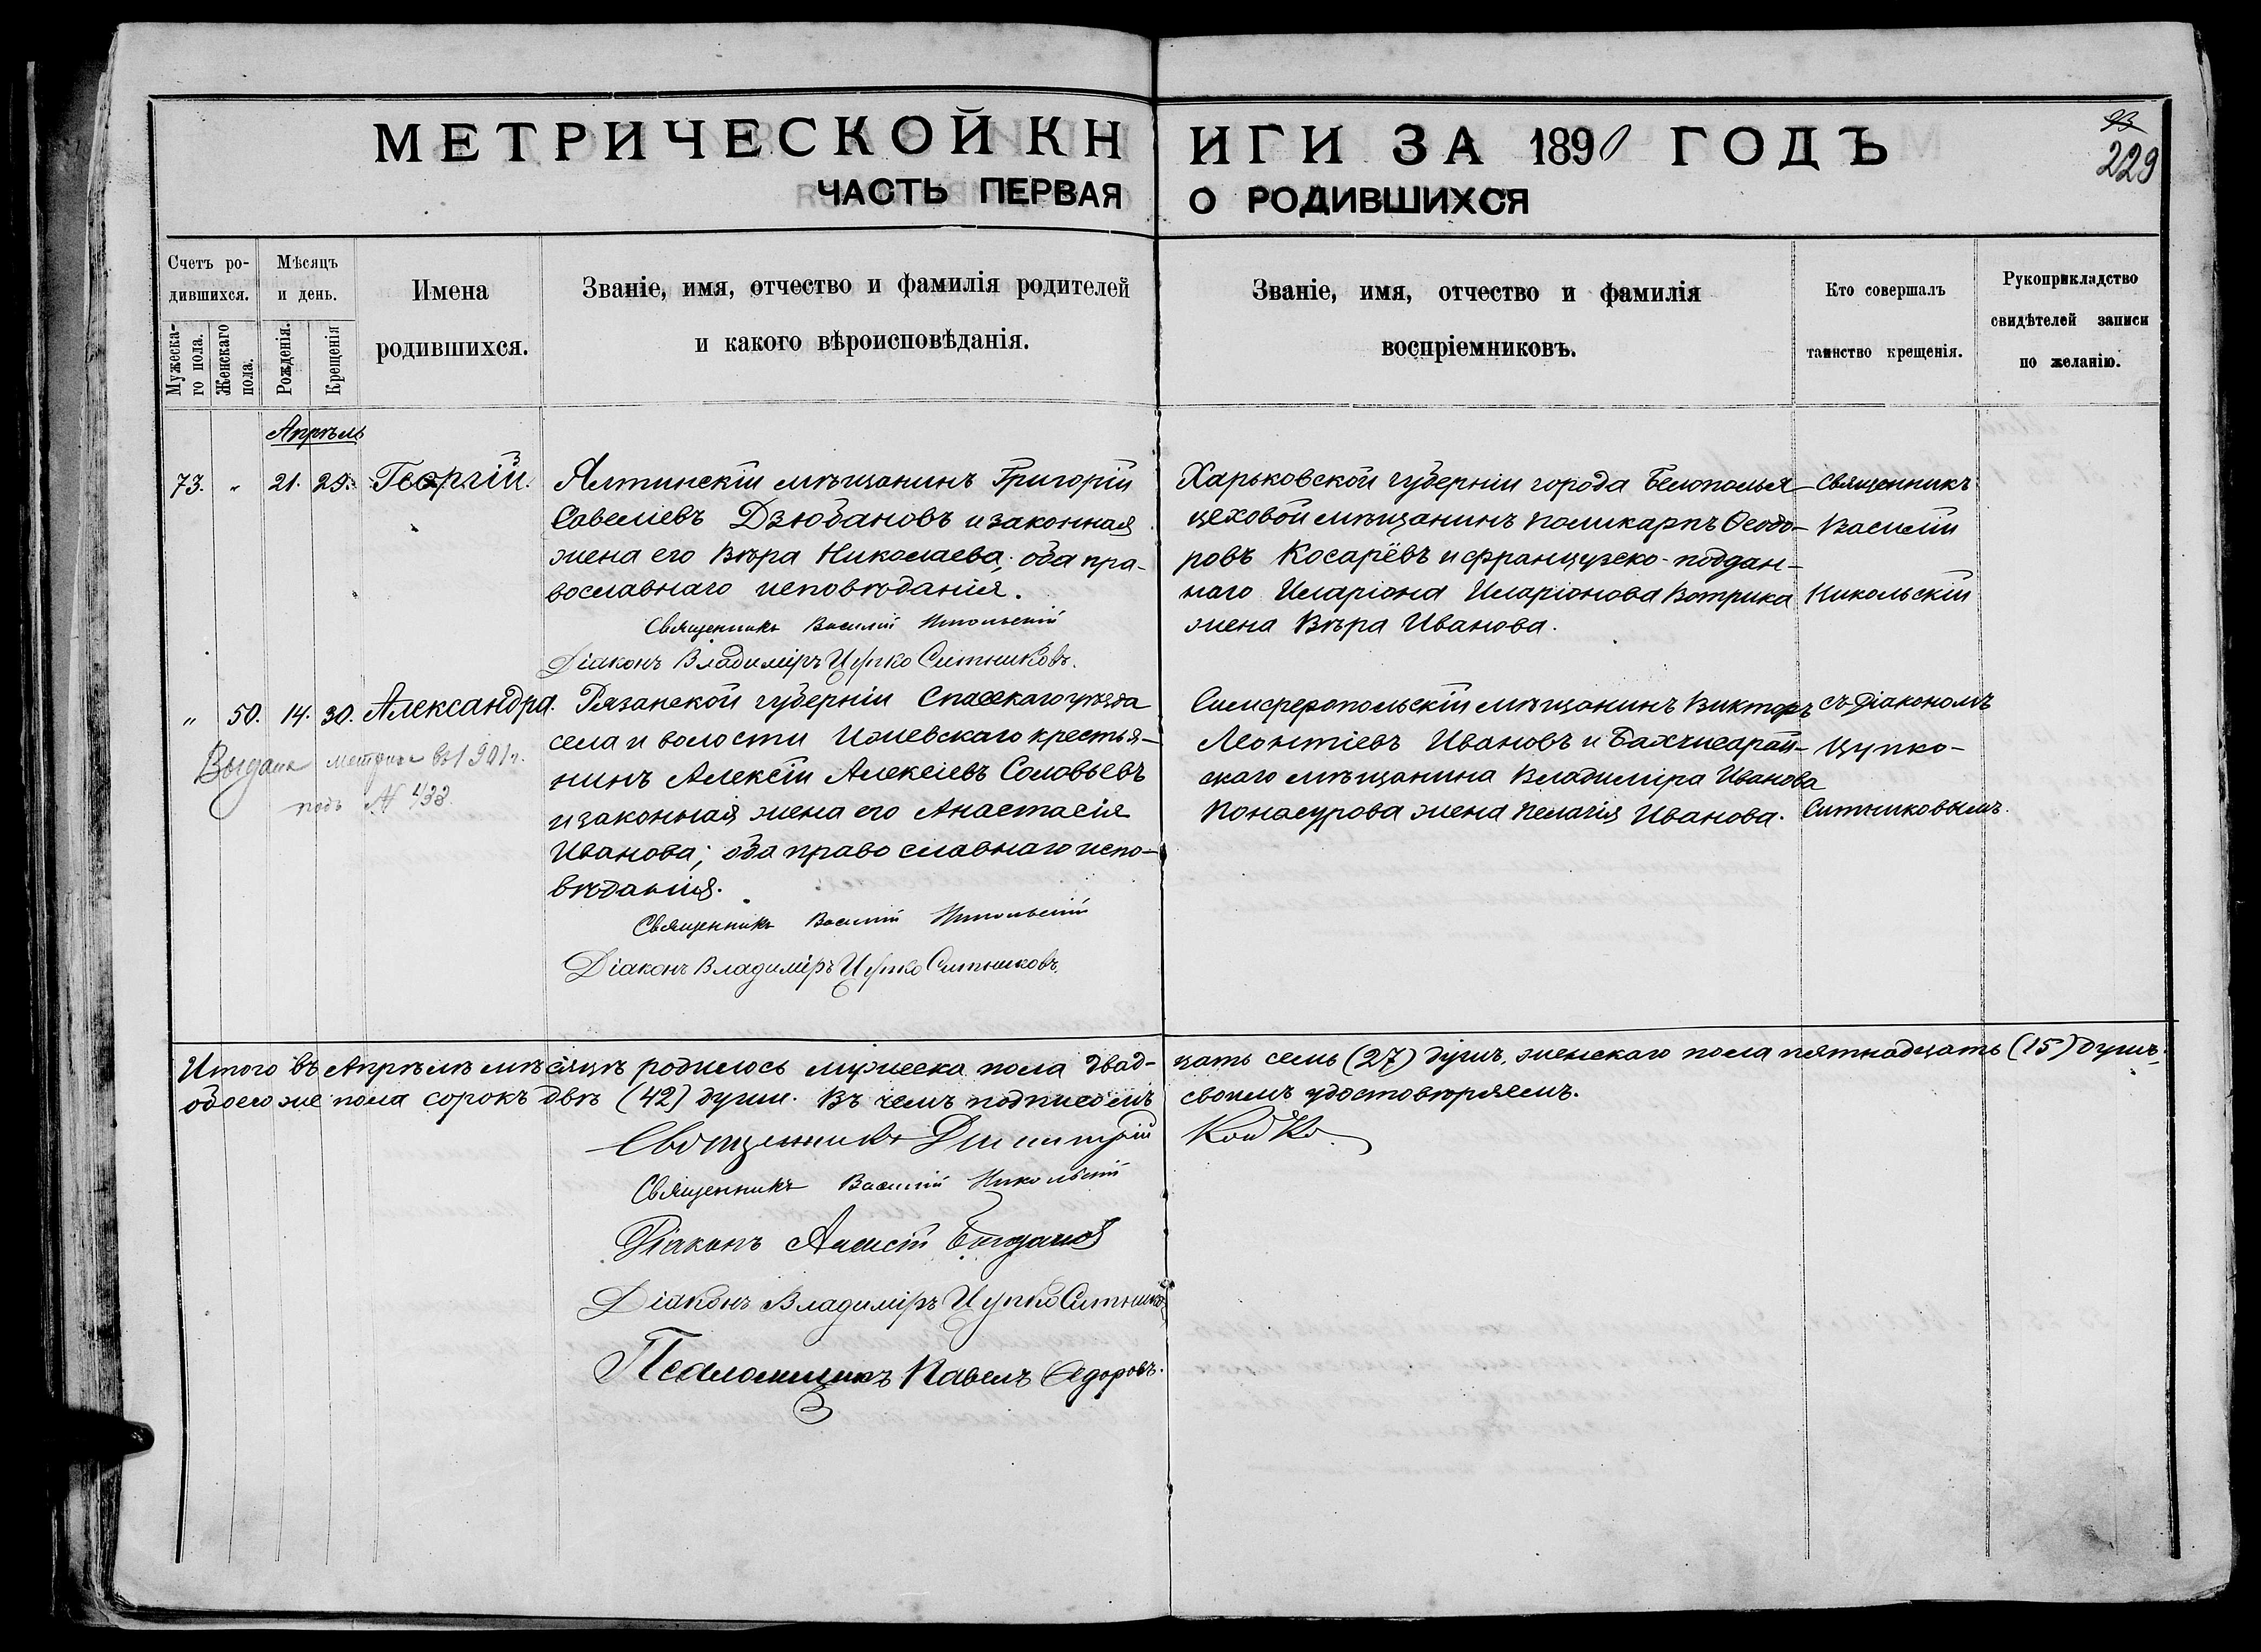 МЕТРИЧЕСКОЙ КНИГИ ЗА 1890 ГОДЪ
ЧАСТЬ ПЕРВАЯ О РОДИВШИХСЯ
93
229
Счетъ ро-
дившихся.
Мужеска-
го пола.
Женскаго
пола.
Мѣсяцъ
и день.
Рожденія.
Крещенія
Имена
родившихся.
Званіе, имя, отчество и фамилія родителей
и какого вѣроисповѣданія.
Званіе, имя, отчество и фамилія
воспріемниковъ.
Кто совершалъ
таинство крещенія.
Рукоприкладство
свидѣтелей записи
по желанію.
Апрѣль
73. " 21. 29. Георгій.
Ялтинскій мѣщанинъ Григорій
Савеліевъ Дзюбановъ и законная
жена его Вѣра Николаева; оба пра-
вославнаго исповѣданія.
Священникъ Василій Никольскій
Діаконъ Владиміръ Цупко Ситниковъ.
Харьковской губерніи города Белополья
цеховой мѣщанинъ Поликарпъ Ѳеодо-
ровъ Косарёвъ и французско-поддан-
наго Иларіона Иларіонова Вотрика
жена Вѣра Иванова.
Священникъ
Василій
Никольскій
" 50. 14. 30. Александра.
Выдана метрика въ 1901 г.
подъ № 433.
Рязанской губерніи Спасскаго уѣзда
села и волости Ижевскаго крестья-
нинъ Алексѣй Алексіевъ Соловьевъ
и законная жена его Анастасія
Иванова; оба православнаго испо-
вѣданія.
Священникъ Василій Никольскій
Діаконъ Владиміръ Цупко Ситниковъ.
Симферопольскій мѣщанинъ Викторъ
Леонтіевъ Ивановъ и Бахчисарай-
скаго мѣщанина Владиміра Иванова
Понасурова жена Пелагія Иванова.
съ Діакономъ
Цупко-
Ситниковымъ.
Итого въ Апрѣлѣ мѣсяцѣ родилось мужеска пола двад-цать семь (27) душъ, женскаго пола пятнадцать (15) душъ.
обоего же пола сорокъ двѣ (42) души. Въ чемъ подписомъ своимъ удостовѣряемъ.
Священникъ Димитрій Койко.
Священникъ Василій Никольскій
Діаконъ Алексій Богданов
Діаконъ Владиміръ Цупко Ситников
Псаломщикъ Павелъ Ѳедоровъ.